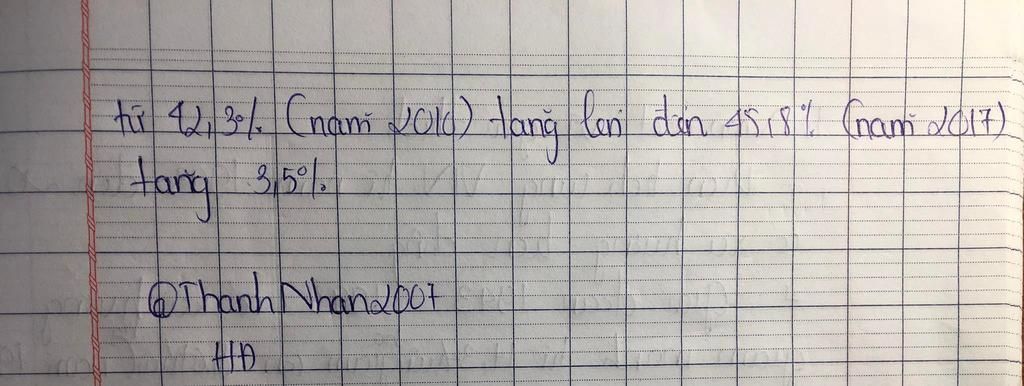 từ 42,3% (năm 2010) tăng lên đến 45,8% (năm 2017)
tăng 3,5%.
@ThanhNhan2007
HĐ